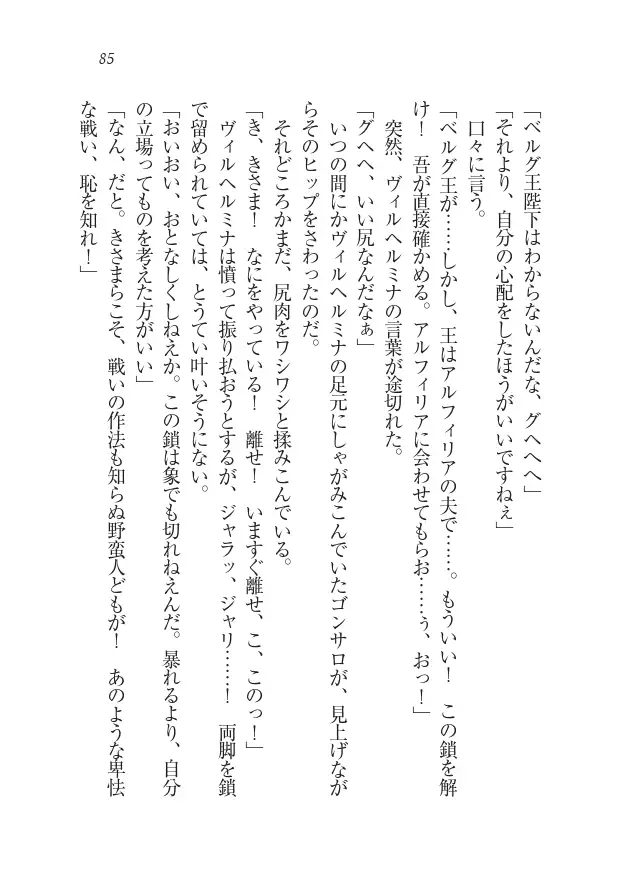 85
「ベルグ王陛下はわからないんだな、グヘヘヘ」
「それより、自分の心配をしたほうがいいですねぇ」
口々に言う。
「ベルグ王が……しかし、王はアルフィリアの夫で……。もういい！　この鎖を解
け！　吾が直接確かめる。アルフィリアに会わせてもらお……ぅ、おっ！」
突然、ヴィルヘルミナの言葉が途切れた。
「グヘヘ、いい尻なんだなぁ」
いつの間にかヴィルヘルミナの足元にしゃがみこんでいたゴンサロが、見上げなが
らそのヒップをさわったのだ。
それどころかまだ、尻肉をワシワシと揉みこんでいる。
「き、きさま！　なにをやっている！　離せ！　いますぐ離せ、こ、このっ！」
ヴィルヘルミナは憤って振り払おうとするが、ジャラッ、ジャリ……！　両脚を鎖
で留められていては、とうてい叶いそうにない。
「おいおい、おとなしくしねえか。この鎖は象でも切れねえんだ。暴れるより、自分
の立場ってものを考えた方がいい」
「なん、だと。きさまらこそ、戦いの作法も知らぬ野蛮人どもが！　あのような卑怯
な戦い、恥を知れ！」